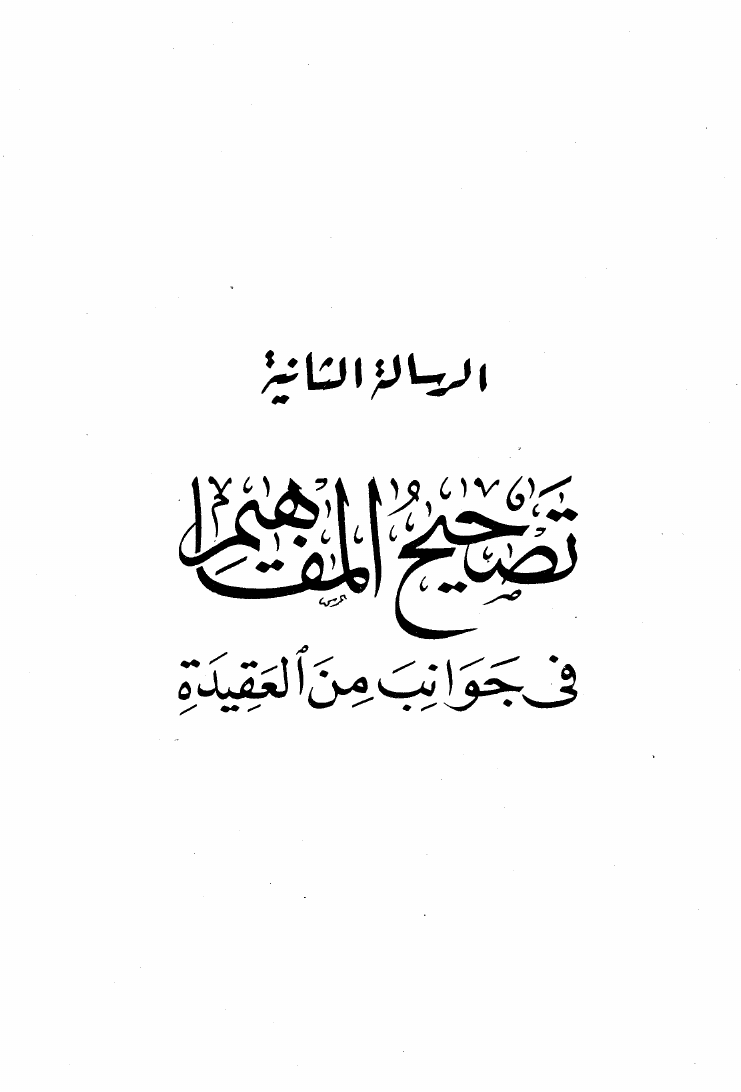 الرسالة الثانية
تصحيح المفاهيم
فى جَوَانِبَ مِنَ ٱلعَقِيدَةِ